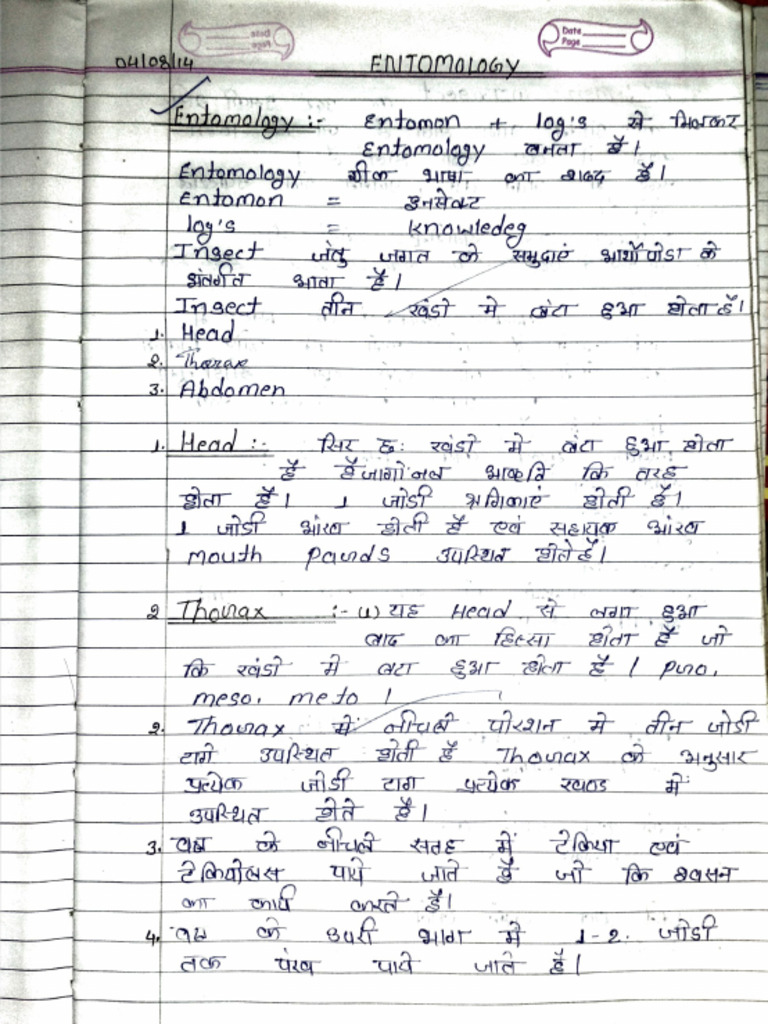 Date
Page
04/08/14
ENTOMOLOGY
Entomology :- Entomon + log's से मिलकर
Entomology बनता है।
Entomology ग्रीक भाषा का शब्द है।
Entomon = इनसेक्ट
log's = knowledeg
Insect जंतु जगत के समुदाएं आर्थोपोडा के
अंतर्गत आता है।
Insect तीन खंडो मे बंटा हुआ होता है।
1. Head
2. Thorax
3. Abdomen
1. Head :- सिर छः खंडो मे बंटा हुआ होता
है आकृति कि तरह
होता है। 1 जोडी श्रंगिकाएं होती है।
1 जोडी आंख होती है एवं सहायक आंख
mouth pounds उपस्थित होते है।
2 Thorax :- (1) यह Head से लगा हुआ
बाद का हिस्सा होता है जो
कि खंडो मे बटा हुआ होता है। pro,
meso, meto।
2. Thorax में नीचले पोरशन मे तीन जोडी
टागे उपस्थित होती है Thorax के अनुसार
प्रत्येक जोडी टाग प्रत्येक खण्ड में
उपस्थित होते है।
3. वक्ष के नीचले सतह में टेकिया एवं
टेकियोलस पाये जाते है जो कि श्वसन
का कार्य करते है।
4. वक्ष के उपरी भाग मे 1-2. जोडी
तक पंख पाये जाते है।